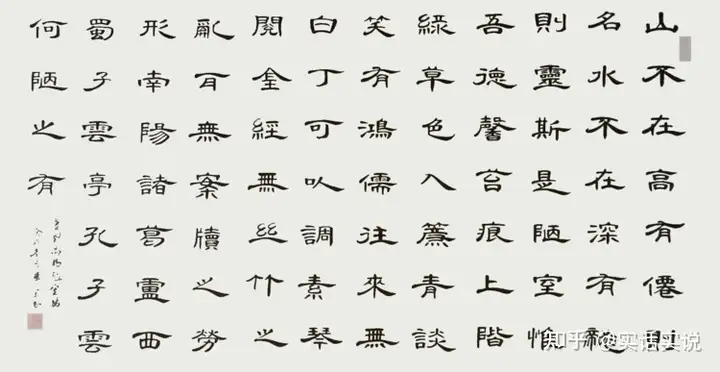 山不在高有僊則
名水不在深有龍
則靈斯是陋室惟
吾德馨苔痕上階
綠草色入簾青談
笑有鴻儒往來無
白丁可以調素琴
閱金經無絲竹之
亂耳無案牘之勞
形南陽諸葛廬西
蜀子雲亭孔子雲
何陋之有
知乎 @实话实说